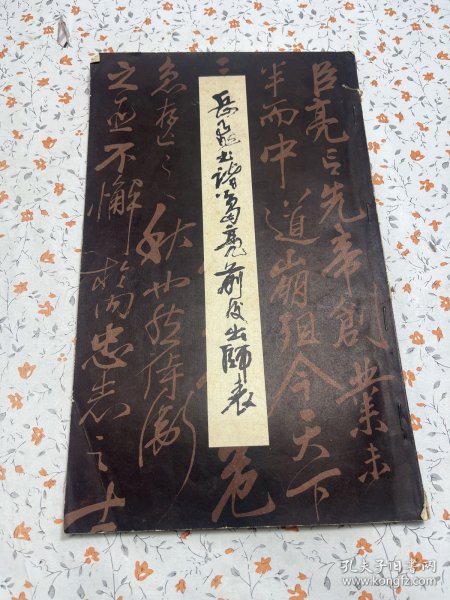 岳飞书诸葛亮前后出师表
臣亮言先帝創業未
半而中道崩殂今天下
三
危
急存亡之秋也然侍衛
之臣不懈於內忠志之士
孔夫子旧书网
www.kongfz.com